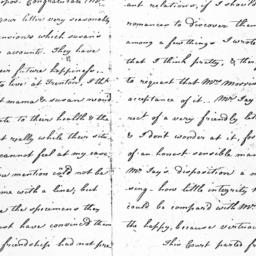 Congratulate Mrs.
your letter very seasonably
which susan's
accounts. They have
future happiness.
to live at Trenton, I th
mama & susan would
to their health & the
really while their situ
cannot feel at my ease
mention could not be
me with a line, but
the specimens they
must have convinced them
friendship had not pre
ant relations, if I should
romances to discover them
among a few things I wrote
that I think pretty, & th
to request that Mrs. Morris
acceptance of it. Mr. Jay
rect of a very friendly l
& I don't wonder at it, fo
of an honest sensible man
Mr. Jay's disposition a
sing - how little integrity
could be compared with Mr.
the happy, because virtuous
This Court parted f